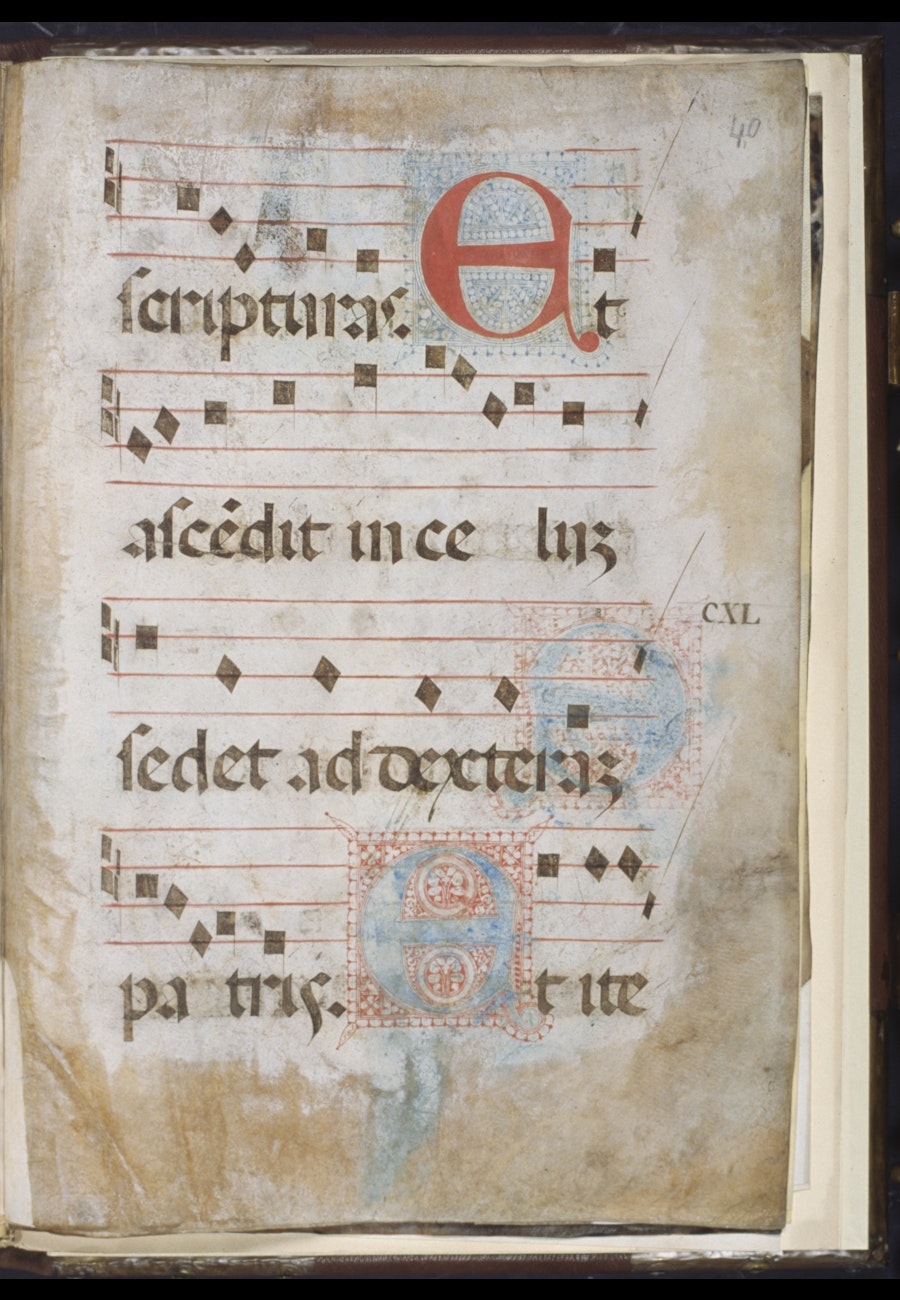 40
scripturas. Et
ascēdit in ce luꝫ
CXL
sedet ad dexteraꝫ
pa tris. Et ite